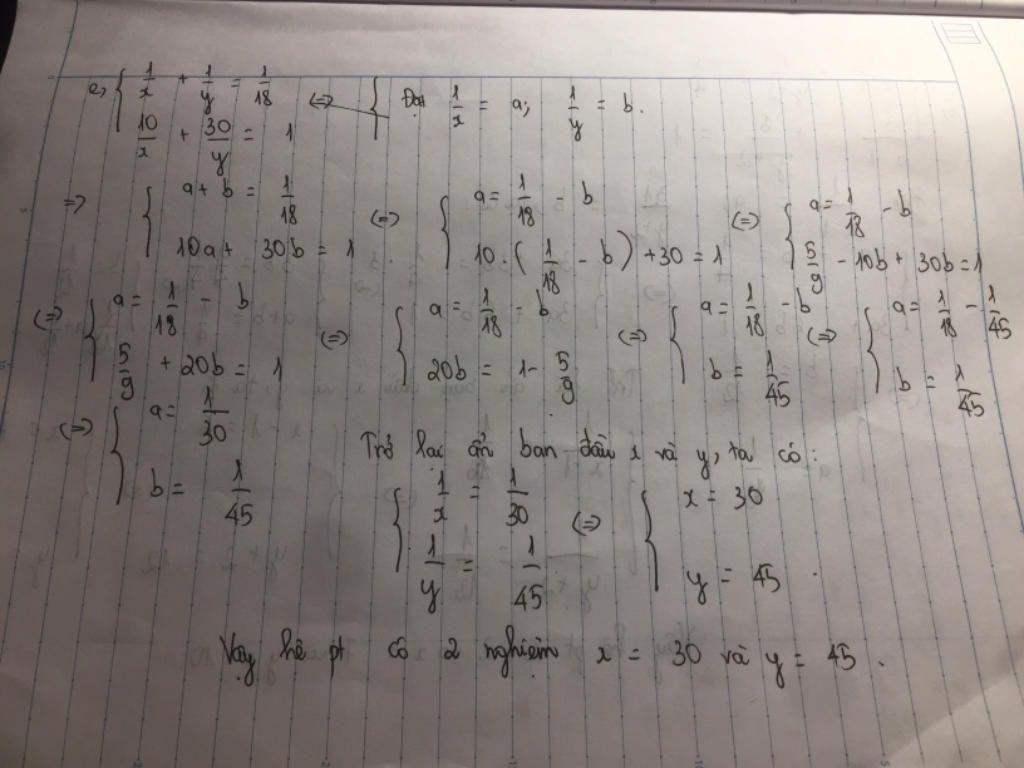 e, { 1/x + 1/y = 1/18 ; 10/x + 30/y = 1 (=) { Đặt 1/x = a; 1/y = b.
=> { a + b = 1/18 ; 10a + 30b = 1 (=) { a = 1/18 - b ; 10.(1/18 - b) + 30 = 1 (=) { a = 1/18 - b ; 5/9 - 10b + 30b = 1
(=) { a = 1/18 - b ; 5/9 + 20b = 1 (=) { a = 1/18 - b ; 20b = 1 - 5/9 (=) { a = 1/18 - b ; b = 1/45 (=) { a = 1/18 - 1/45 ; b = 1/45
(=) { a = 1/30 ; b = 1/45
Trở lại ẩn ban đầu x và y, ta có:
{ 1/x = 1/30 ; 1/y = 1/45 (=) { x = 30 ; y = 45.
Vậy hệ pt có 2 nghiệm x = 30 và y = 45.